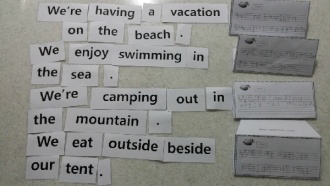 We're having a vacation
on the beach.
We enjoy swimming in
the sea.
We're camping out in
the mountain.
We eat outside beside
our tent.